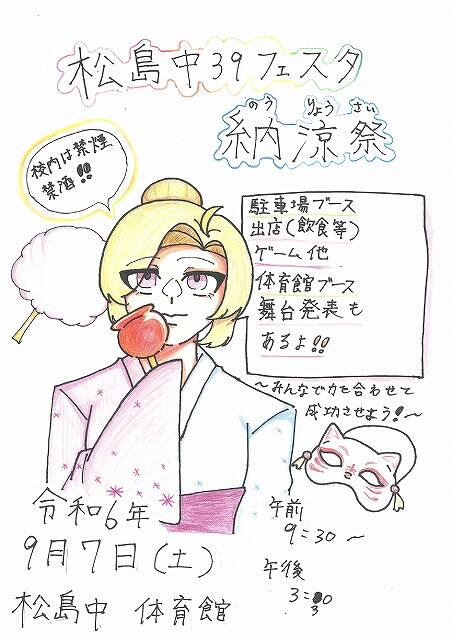 松島中39フェスタ
のう りょう さい
納涼祭
校内は禁煙
禁酒!!
駐車場ブース
出店(飲食等)
ゲーム他
体育館ブース
舞台発表も
あるよ!!
～みんなで力を合わせて
成功させよう!～
令和6年
9月7日(土)
松島中 体育館
午前
9:30～
午後
3:30